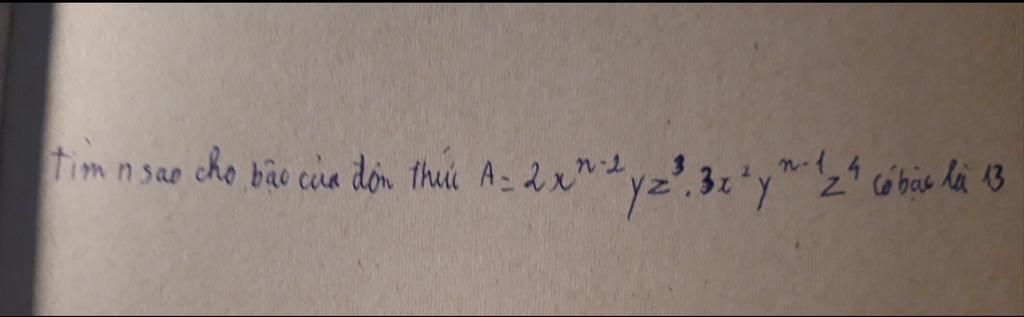 Tìm n sao cho bậc của đơn thức A = 2xⁿ⁻²yz³.3x²yⁿ⁻¹z⁴ có bậc là 13